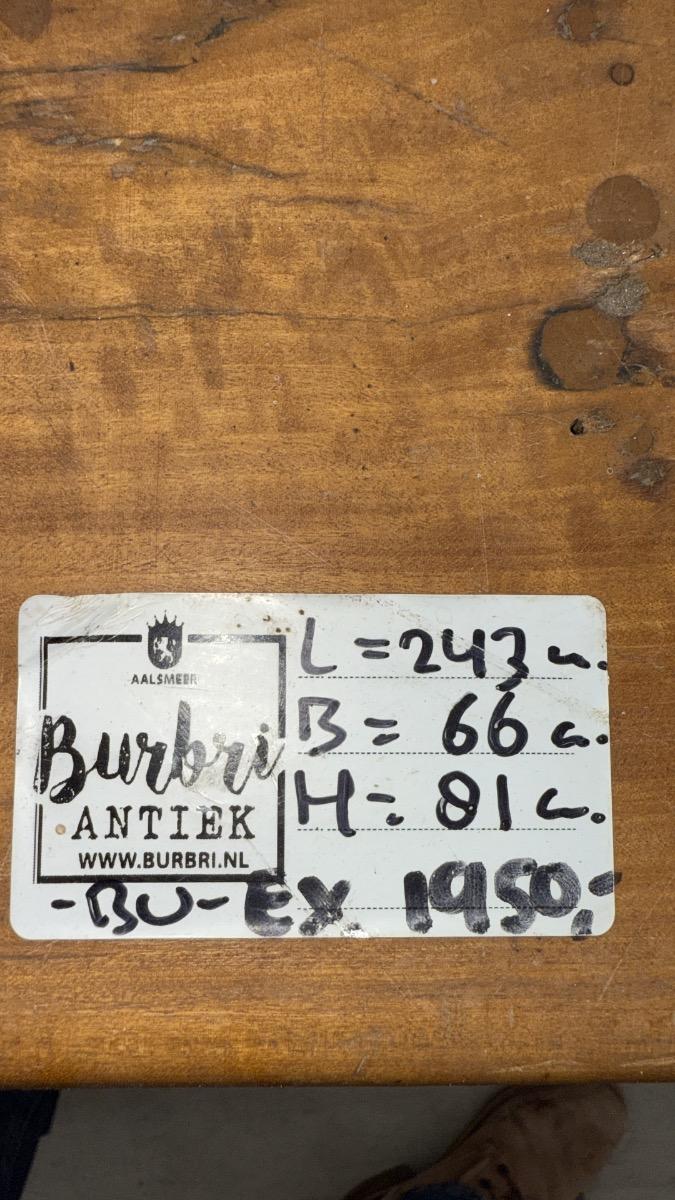 AALSMEER
Burbri
ANTIEK
WWW.BURBRI.NL
L = 243 c.
B = 66 c.
H = 81 c.
-BU- Ex 1950,-